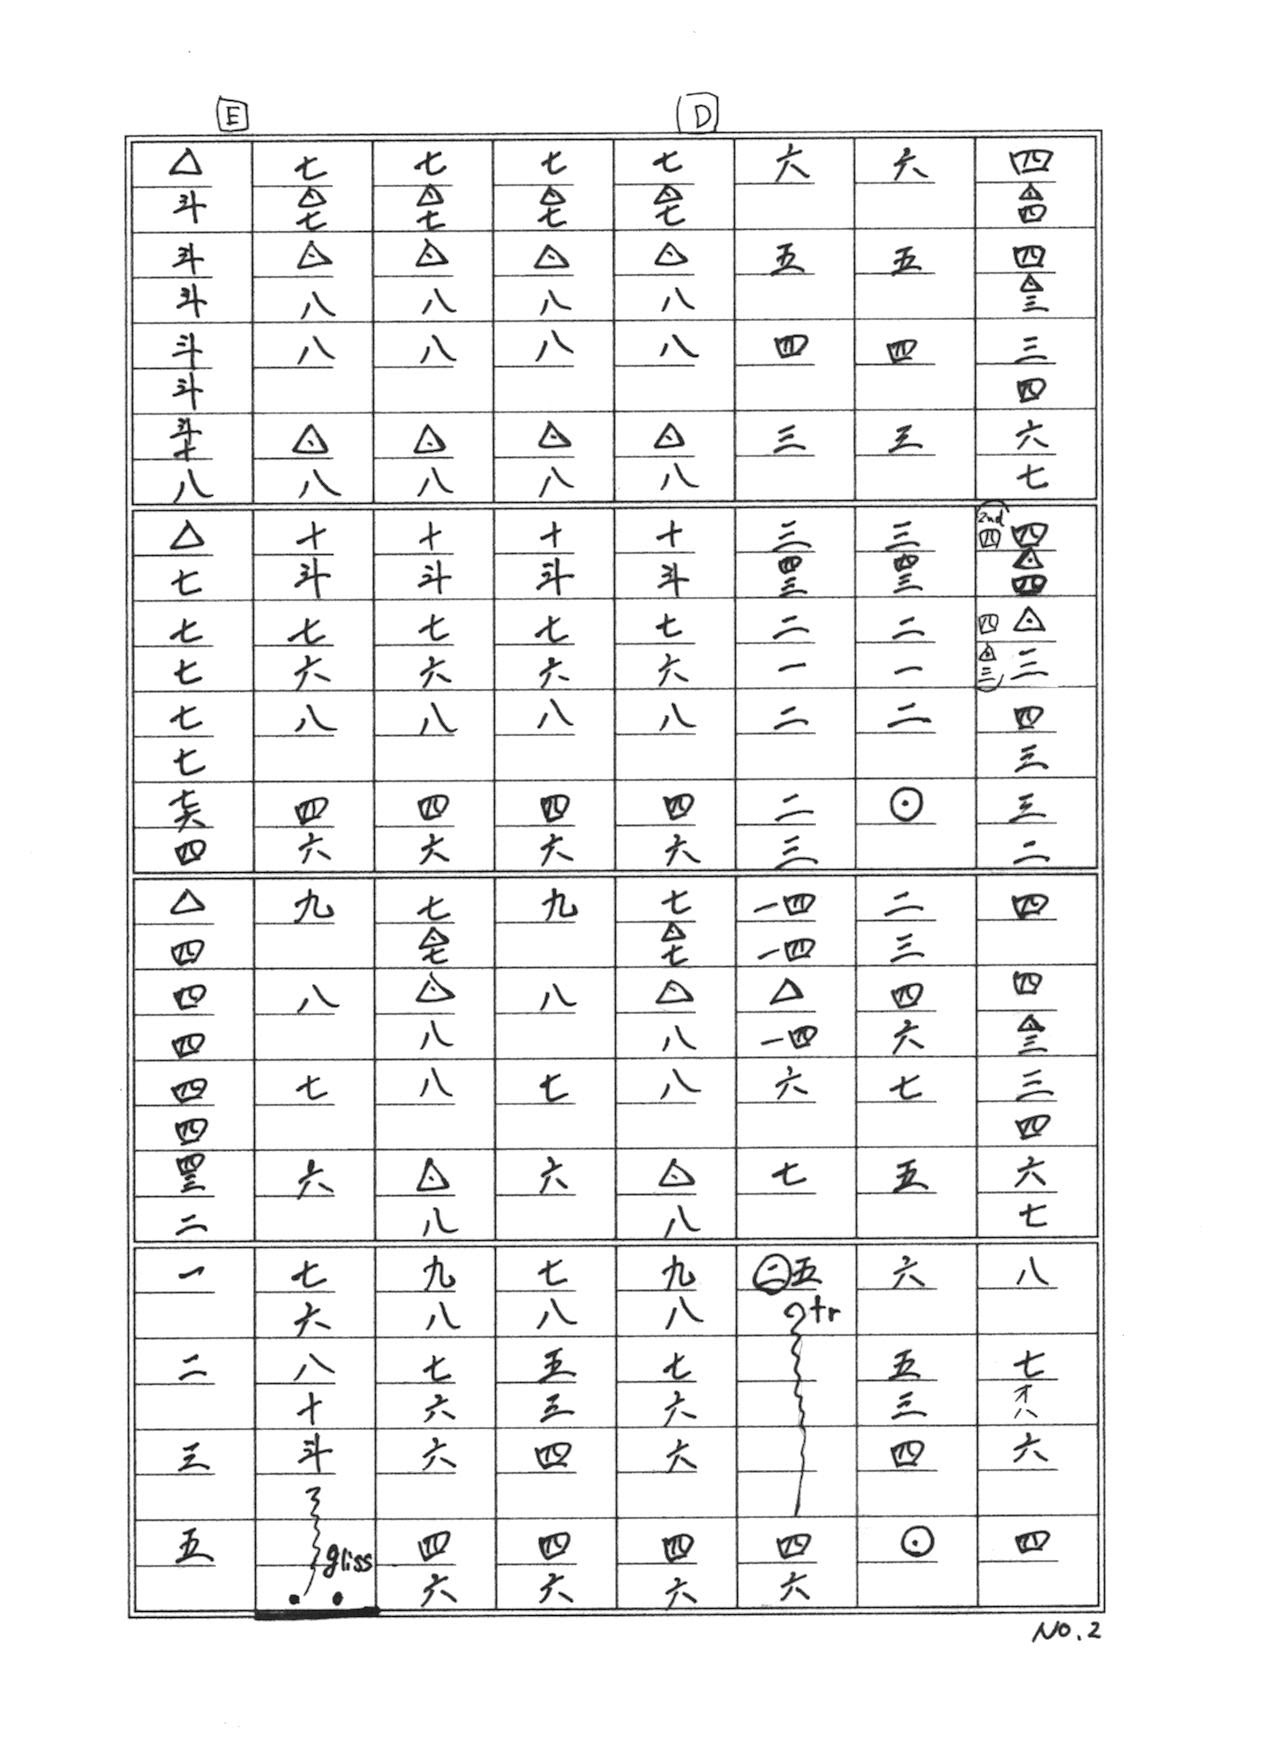 四 ◬四 四 ◬三 三 四 六 七 四 ◬四 ◬ 三 四 三 三 二 四 四 ◬三 三 四 六 七 八 七 オ八 六 四
(2nd 四 四 ◬三)
六 五 四 三 三 四三 二 一 二 ⊙ 二 三 四 六 七 五 六 五 三 四 ⊙
六 五 四 三 三 四三 二 一 二 二 三 一四 一四 △ 一四 六 七 ㊁五 tr 四 六
D
七 ◬七 ◬ 八 八 ◬ 八 十 斗 七 六 八 四 六 七 ◬七 ◬ 八 八 ◬ 八 九 八 七 六 六 四 六
七 ◬七 ◬ 八 八 ◬ 八 十 斗 七 六 八 四 六 九 八 七 六 七 八 五 三 四 四 六
七 ◬七 ◬ 八 八 ◬ 八 十 斗 七 六 八 四 六 七 ◬七 ◬ 八 八 ◬ 八 九 八 七 六 六 四 六
七 ◬七 ◬ 八 八 ◬ 八 十 斗 七 六 八 四 六 九 八 七 六 七 六 八 十 斗 gliss
E
△ 斗 斗 斗 斗 斗 斗十 八 △ 七 七 七 七 七 七六 四 △ 四 四 四 四 四 四三 二 一 二 三 五
NO.2